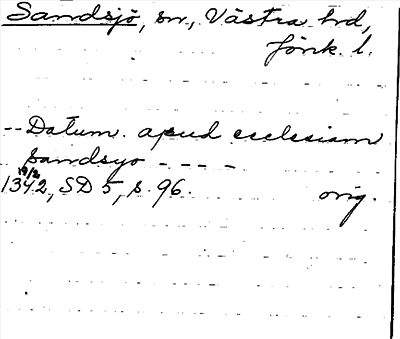 Sandsjö, sn., Västra hrd,
Jönk. l.
-- Datum. apud ecclesiam
sandsyo ----
19/2
1342, SD 5, s. 96. orig.